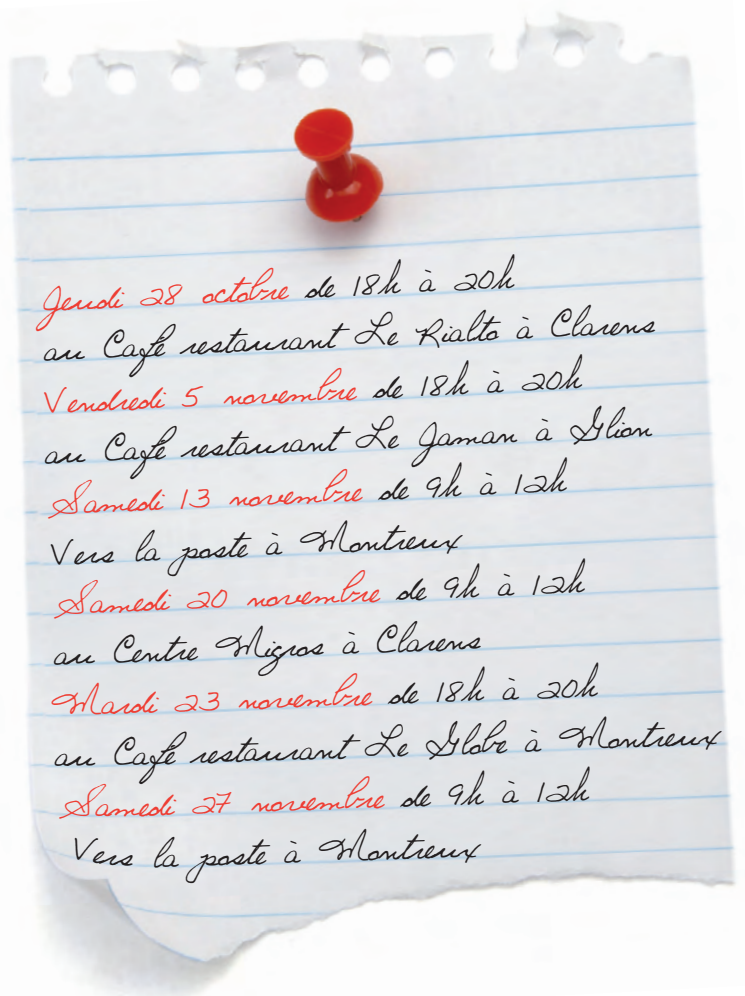 Jeudi 28 octobre de 18h à 20h
au Café restaurant Le Rialto à Clarens
Vendredi 5 novembre de 18h à 20h
au Café restaurant Le Jaman à Glion
Samedi 13 novembre de 9h à 12h
Vers la poste à Montreux
Samedi 20 novembre de 9h à 12h
au Centre Migros à Clarens
Mardi 23 novembre de 18h à 20h
au Café restaurant Le Globe à Montreux
Samedi 27 novembre de 9h à 12h
Vers la poste à Montreux